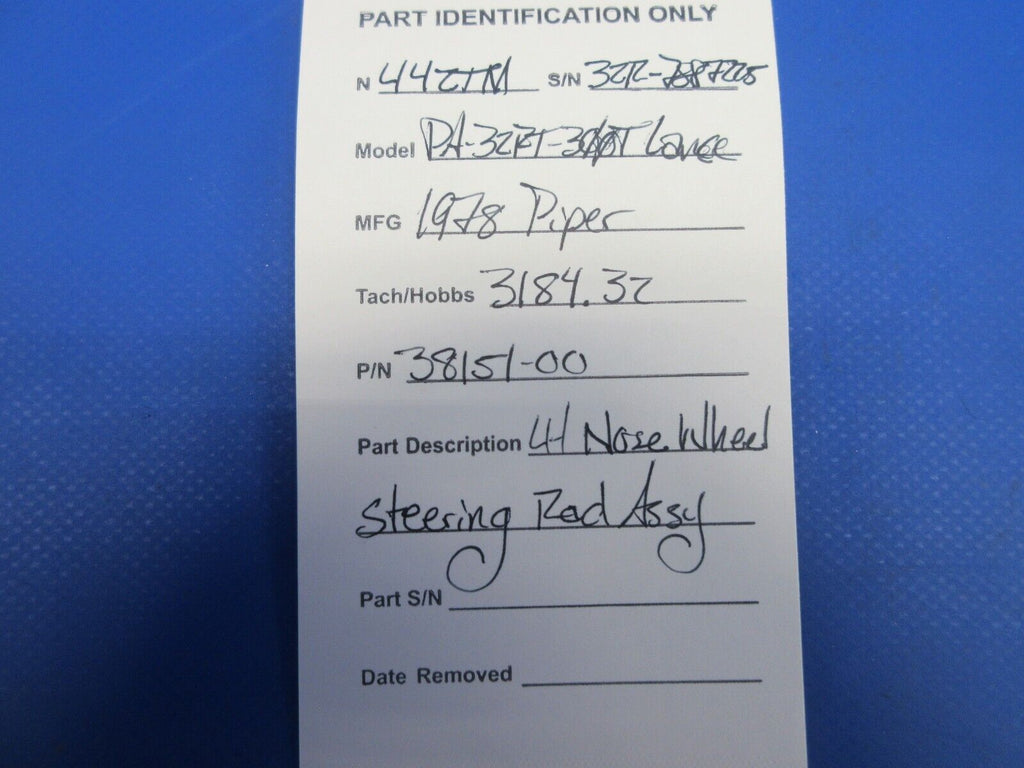 PART IDENTIFICATION ONLY
N 442TM S/N 32R-7887225
Model PA-32RT-300T Lance
MFG 1978 Piper
Tach/Hobbs 3184.32
P/N 38151-00
Part Description LH Nose Wheel
Steering Rod Assy
Part S/N
Date Removed